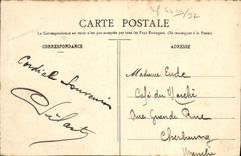 CARTE POSTALE
La Correspondance au recto n'est pas acceptée par tous les Pays Etrangers. (Se renseigner à la Poste).
CORRESPONDANCE
ADRESSE
Cordial Souvenir
Madame Eude
Café du Marché
Rue Grande Rue
Cherbourg
Manche